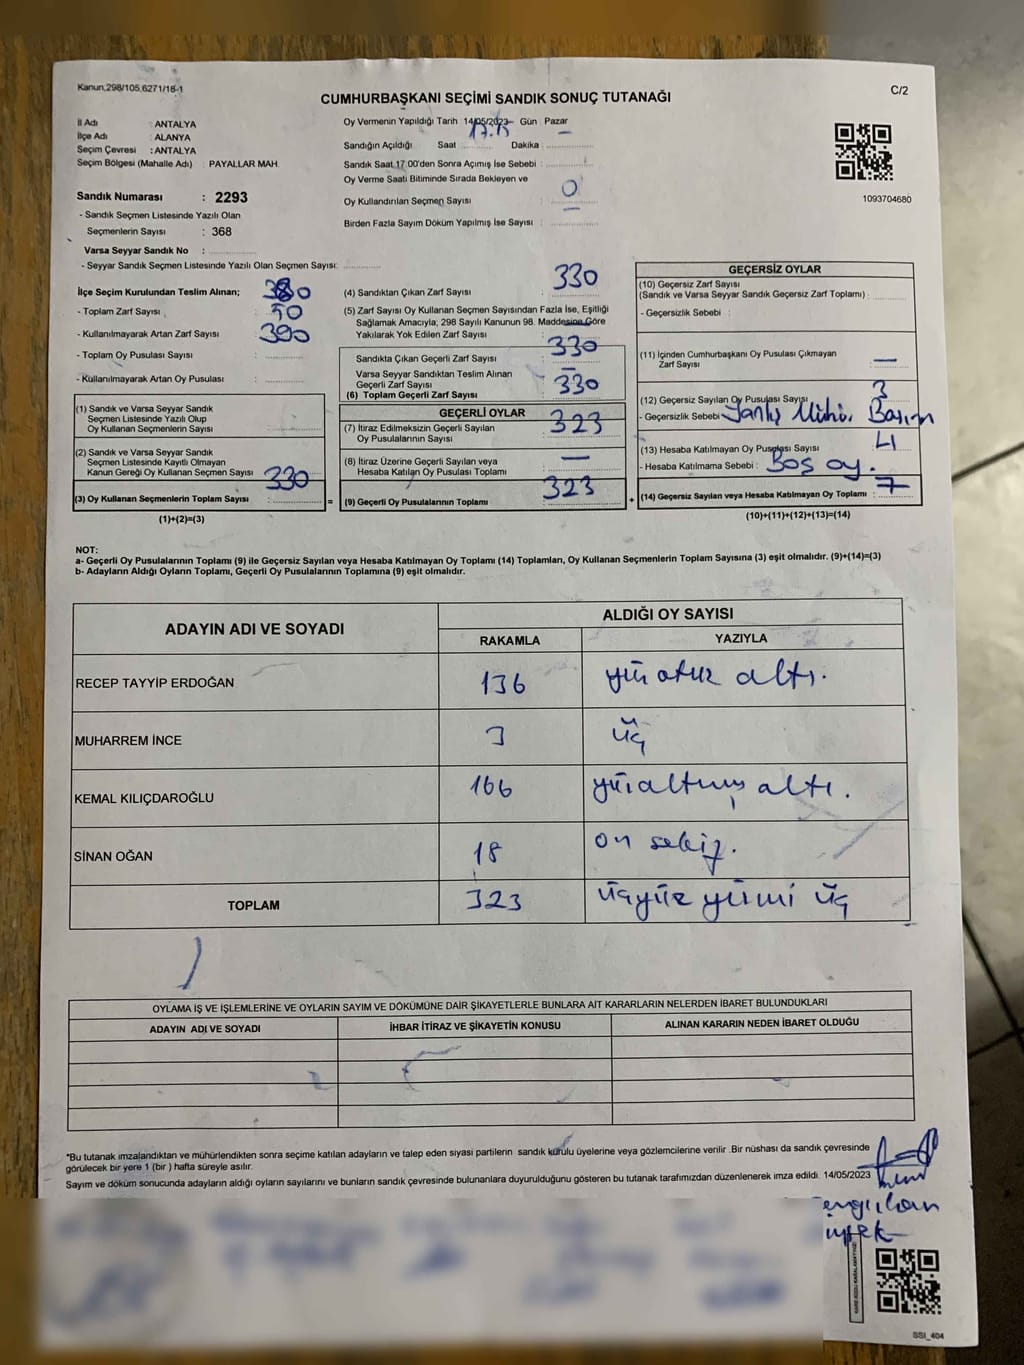 Kanun,298/105,6271/18-1
C/2
CUMHURBAŞKANI SEÇİMİ SANDIK SONUÇ TUTANAĞI
İl Adı : ANTALYA
İlçe Adı : ALANYA
Seçim Çevresi : ANTALYA
Seçim Bölgesi (Mahalle Adı) : PAYALLAR MAH.
Sandık Numarası : 2293
- Sandık Seçmen Listesinde Yazılı Olan
Seçmenlerin Sayısı : 368
Varsa Seyyar Sandık No :
- Seyyar Sandık Seçmen Listesinde Yazılı Olan Seçmen Sayısı:
Oy Vermenin Yapıldığı Tarih 14/05/2023 Gün Pazar
Sandığın Açıldığı Saat 17.15 Dakika : —
Sandık Saat 17:00'den Sonra Açımış İse Sebebi :
Oy Verme Saati Bitiminde Sırada Bekleyen ve
Oy Kullandırılan Seçmen Sayısı : 0
Birden Fazla Sayım Döküm Yapılmış İse Sayısı : —
1093704680
İlçe Seçim Kurulundan Teslim Alınan;
- Toplam Zarf Sayısı : 380
- Kullanılmayarak Artan Zarf Sayısı : 50
- Toplam Oy Pusulası Sayısı : 390
- Kullanılmayarak Artan Oy Pusulası :
(1) Sandık ve Varsa Seyyar Sandık
Seçmen Listesinde Yazılı Olup
Oy Kullanan Seçmenlerin Sayısı :
(2) Sandık ve Varsa Seyyar Sandık
Seçmen Listesinde Kayıtlı Olmayan
Kanun Gereği Oy Kullanan Seçmen Sayısı :
(3) Oy Kullanan Seçmenlerin Toplam Sayısı : 330
(1)+(2)=(3)
=
(4) Sandıktan Çıkan Zarf Sayısı : 330
(5) Zarf Sayısı Oy Kullanan Seçmen Sayısından Fazla İse, Eşitliği
Sağlamak Amacıyla; 298 Sayılı Kanunun 98. Maddesine Göre
Yakılarak Yok Edilen Zarf Sayısı :
Sandıkta Çıkan Geçerli Zarf Sayısı : 330
Varsa Seyyar Sandıktan Teslim Alınan
Geçerli Zarf Sayısı : —
(6) Toplam Geçerli Zarf Sayısı : 330
GEÇERLİ OYLAR
(7) İtiraz Edilmeksizin Geçerli Sayılan
Oy Pusulalarının Sayısı : 323
(8) İtiraz Üzerine Geçerli Sayılan veya
Hesaba Katılan Oy Pusulası Toplamı : —
(9) Geçerli Oy Pusulalarının Toplamı : 323
+
GEÇERSİZ OYLAR
(10) Geçersiz Zarf Sayısı
(Sandık ve Varsa Seyyar Sandık Geçersiz Zarf Toplamı) :
- Geçersizlik Sebebi :
(11) İçinden Cumhurbaşkanı Oy Pusulası Çıkmayan
Zarf Sayısı : —
(12) Geçersiz Sayılan Oy Pusulası Sayısı : 3
- Geçersizlik Sebebi : Yanlış Mühür Basım
(13) Hesaba Katılmayan Oy Pusulası Sayısı : 4
- Hesaba Katılmama Sebebi : Boş oy.
(14) Geçersiz Sayılan veya Hesaba Katılmayan Oy Toplamı : 7
(10)+(11)+(12)+(13)=(14)
NOT:
a- Geçerli Oy Pusulalarının Toplamı (9) ile Geçersiz Sayılan veya Hesaba Katılmayan Oy Toplamı (14) Toplamları, Oy Kullanan Seçmenlerin Toplam Sayısına (3) eşit olmalıdır. (9)+(14)=(3)
b- Adayların Aldığı Oyların Toplamı, Geçerli Oy Pusulalarının Toplamına (9) eşit olmalıdır.
ADAYIN ADI VE SOYADI
ALDIĞI OY SAYISI
RAKAMLA YAZIYLA
RECEP TAYYİP ERDOĞAN 136 yüz otuz altı.
MUHARREM İNCE 3 üç
KEMAL KILIÇDAROĞLU 166 yüzaltmış altı.
SİNAN OĞAN 18 on sekiz.
TOPLAM 323 üçyüz yirmi üç
OYLAMA İŞ VE İŞLEMLERİNE VE OYLARIN SAYIM VE DÖKÜMÜNE DAİR ŞİKAYETLERLE BUNLARA AİT KARARLARIN NELERDEN İBARET BULUNDUKLARI
ADAYIN ADI VE SOYADI İHBAR İTİRAZ VE ŞİKAYETİN KONUSU ALINAN KARARIN NEDEN İBARET OLDUĞU
*Bu tutanak imzalandıktan ve mühürlendikten sonra seçime katılan adayların ve talep eden siyasi partilerin sandık kurulu üyelerine veya gözlemcilerine verilir .Bir nüshası da sandık çevresinde
görülecek bir yere 1 (bir ) hafta süreyle asılır.
Sayım ve döküm sonucunda adayların aldığı oyların sayılarını ve bunların sandık çevresinde bulunanlara duyurulduğunu gösteren bu tutanak tarafımızdan düzenlenerek imza edildi. 14/05/2023
SSI_404